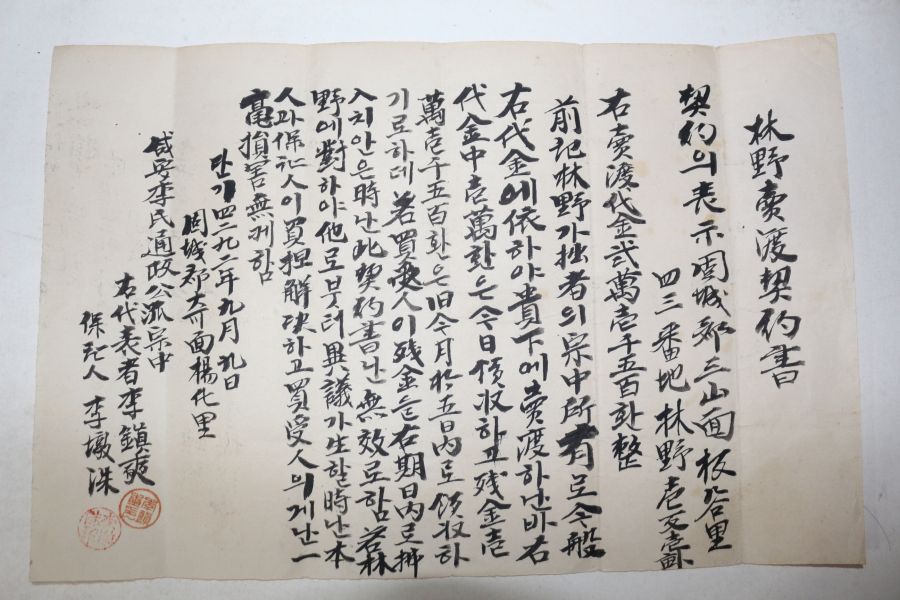 林野賣渡契約書
契約의表示固城郡三山面板谷里
四三番地林野壱反壱畝
右賣渡代金弐萬壱千五百환整
前記林野가拙者의宗中所有로今般
右代金에依하야貴下에賣渡하난바右
代金中壱萬환은今日領収하고残金壱
萬壱千五百환은旧今月於五日內로領収하
기로하데若買受人이残金을右期日內로拂
入치안은時난此契約書난無效로함若林
野에對하야他로부터異議가生할時난本
人과保証人이買担解決하고買受人의게난一
毫損害無케함
단기四二九二年九月九日
固城郡大可面楊化里
咸安李氏通政公派宗中
右代表者李鎭奭
保証人 李墩洙